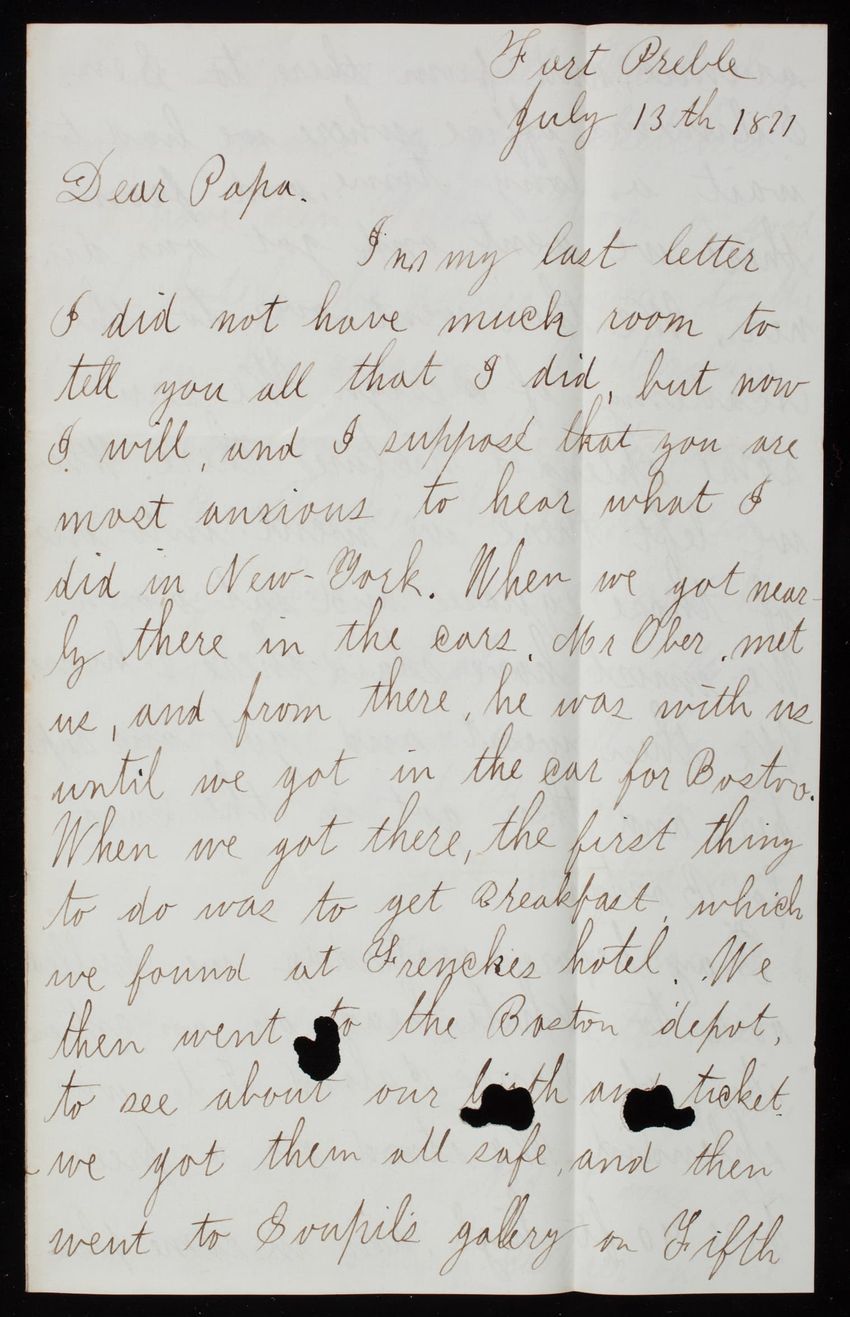 Fort Preble
July 13th 1871
Dear Papa.
In my last letter
I did not have much room to
tell you all that I did, but now
I will, and I suppose that you are
most anxious to hear what I
did in New-York. When we got near-
ly there in the cars, Mr Ober, met
us, and from there, he was with us
until we got in the car for Boston.
When we got there, the first thing
to do was to get Breakfast, which
we found at Frenckes hotel. We
then went to the Boston depot,
to see about our and ticket.
we got them all safe, and then
went to Goupil's gallery on Fifth